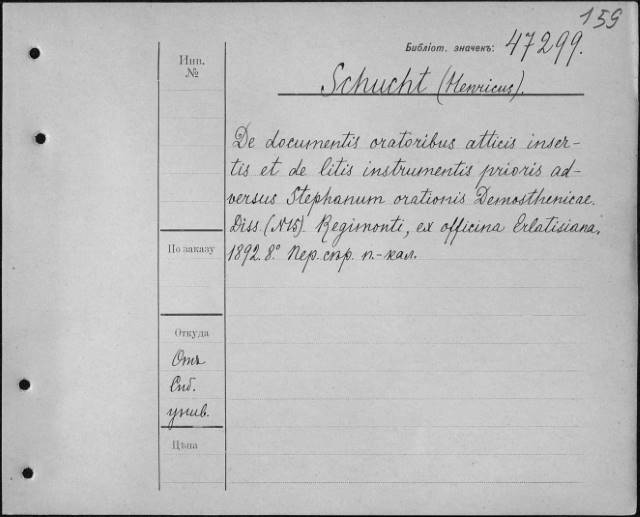 159
Библіот. значекъ: 47299.
Инв.
№
Schucht (Henricus).
De documentis oratoribus atticis inser-
tis et de litis instrumentis prioris ad-
versus Stephanum orationis Demosthenicae.
Diss. (N15). Regimonti, ex officina Erlatisiana,
По заказу
1892. 8.° Пер. сѣр. п.-кал.
Откуда
Отъ
Спб.
унив.
Цѣна